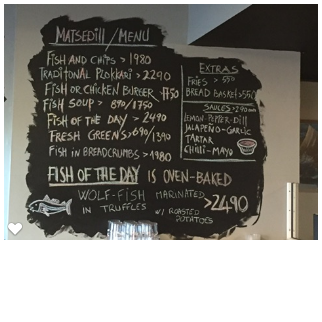 MATSEÐILL/MENU
FISH AND CHIPS > 1980
TRADITIONAL PLOKKARI > 2290
FISH OR CHICKEN BURGER 1750
FISH SOUP > 890/1750
FISH OF THE DAY > 2490
FRESH GREENS > 690/1390
FISH IN BREADCRUMBS > 1980
EXTRAS
FRIES > 550
BREAD BASKET > 550
SAUCES > 290
LEMON-PEPPER-DILL
JALAPENO-GARLIC
TARTAR
CHILLI-MAYO
FISH OF THE DAY IS OVEN-BAKED
WOLF-FISH MARINATED
IN TRUFFLES W/ ROASTED
POTATOES
>2490